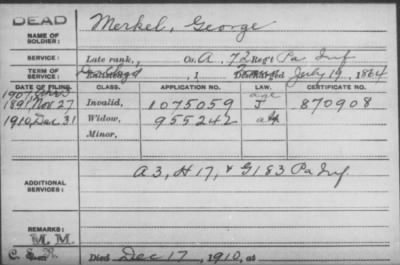 DEAD
NAME OF SOLDIER: Merkel, George
SERVICE: Late rank, Co. A. 72 Reg't Pa Inf
TERM OF SERVICE: Enlisted , 1 Discharged July 19, 1864
DATE OF FILING. CLASS. APPLICATION NO. LAW. CERTIFICATE NO.
1907
age
1891 Nov 27 Invalid, 1075059 J 870908
1910, Dec 31 Widow, 955242
Minor,
ADDITIONAL SERVICES: A 3, H 17, & G 183 Pa Inf
REMARKS:
M. M.
Died Dec 17, 1910, at